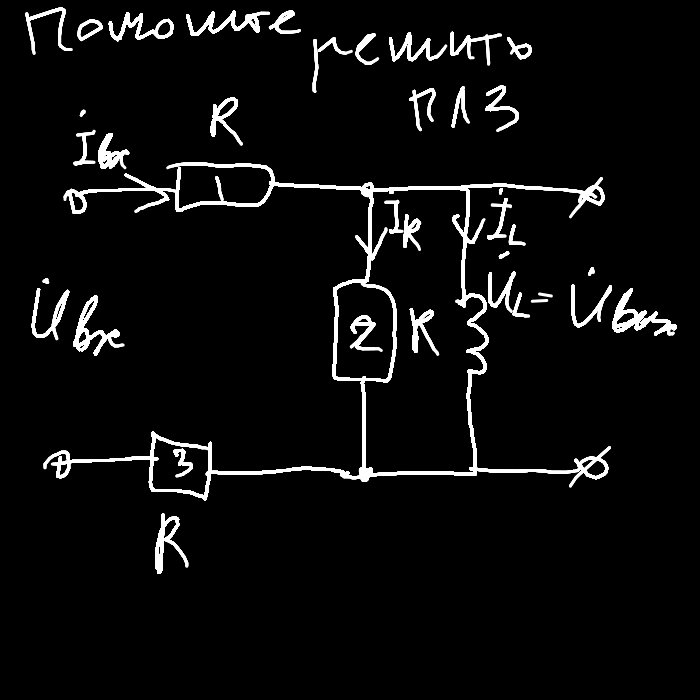 Помогите
решить
ПЛЗ
R
İвх
1
İR
İL
U̇вх
2
R
U̇L = U̇вых
3
R